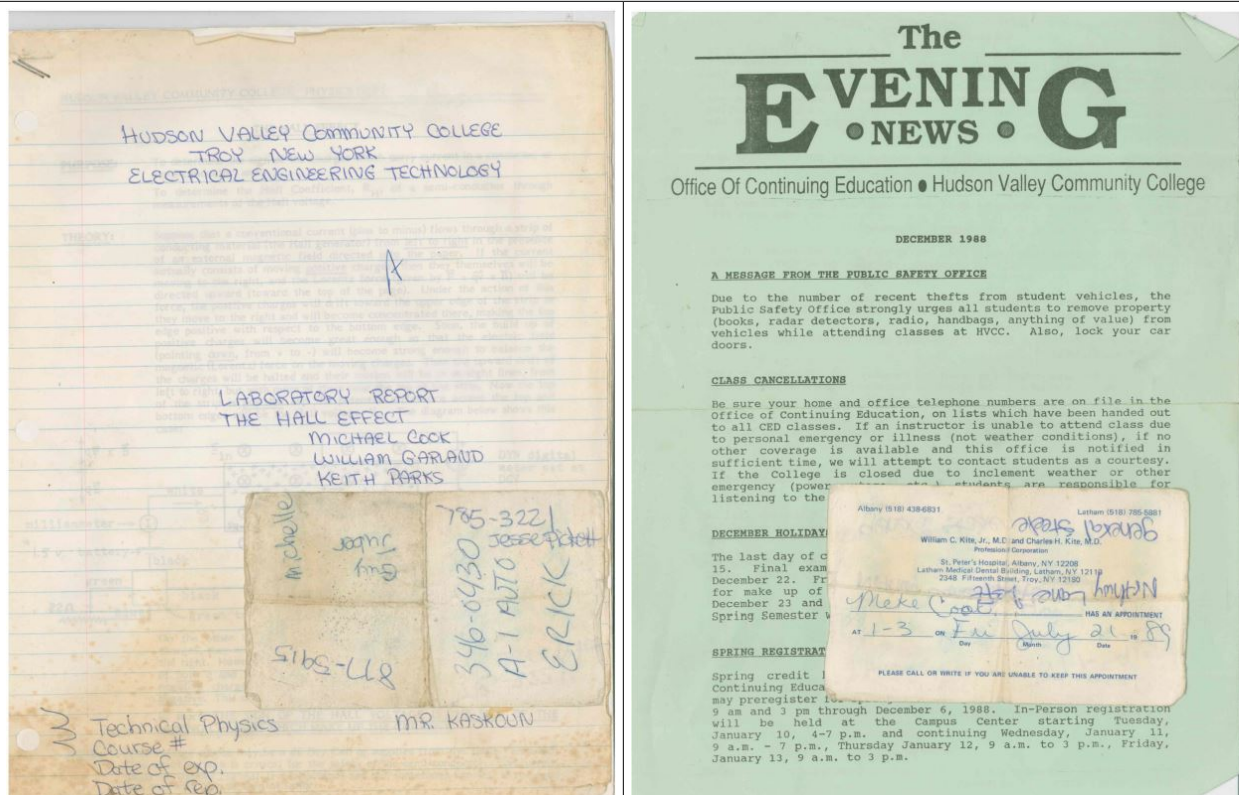 HUDSON VALLEY COMMUNITY COLLEGE
TROY NEW YORK
ELECTRICAL ENGINEERING TECHNOLOGY
A
LABORATORY REPORT
THE HALL EFFECT
MICHAEL COCK
WILLIAM GARLAND
KEITH PARKS
michelle
Guy
Juber
877-5915
785-3221
Jesse Pickett
346-0430
A-1 AUTO
ERICK
Technical Physics
MR. KASKOUN
Course #
Date of exp.
Date of rep.
The
EVENING
NEWS
Office Of Continuing Education • Hudson Valley Community College
DECEMBER 1988
A MESSAGE FROM THE PUBLIC SAFETY OFFICE
Due to the number of recent thefts from student vehicles, the
Public Safety Office strongly urges all students to remove property
(books, radar detectors, radio, handbags, anything of value) from
vehicles while attending classes at HVCC. Also, lock your car
doors.
CLASS CANCELLATIONS
Be sure your home and office telephone numbers are on file in the
Office of Continuing Education, on lists which have been handed out
to all CED classes. If an instructor is unable to attend class due
to personal emergency or illness (not weather conditions), if no
other coverage is available and this office is notified in
sufficient time, we will attempt to contact students as a courtesy.
If the College is closed due to inclement weather or other
emergency (power students are responsible for
listening to the
DECEMBER HOLIDAY
The last day of c
15. Final exam
December 22. Fr
for make up of
December 23 and
Spring Semester w
SPRING REGISTRAT
Spring credit
Continuing Educa
may preregister
9 am and 3 pm through December 6, 1988. In-Person registration
will be held at the Campus Center starting Tuesday,
January 10, 4-7 p.m. and continuing Wednesday, January 11,
9 a.m. - 7 p.m., Thursday January 12, 9 a.m. to 3 p.m., Friday,
January 13, 9 a.m. to 3 p.m.
Albany (518) 438-6831
Latham (518) 785-5881
general Steele
William C. Kite, Jr., M.D. and Charles H. Kite, M.D.
Professional Corporation
St. Peter's Hospital, Albany, NY 12208
Latham Medical Dental Building, Latham, NY 12110
2348 Fifteenth Street, Troy, NY 12180
Lane
HAS AN APPOINTMENT
AT 1-3 ON Fri July 21 19 89
Day Month Date
PLEASE CALL OR WRITE IF YOU ARE UNABLE TO KEEP THIS APPOINTMENT